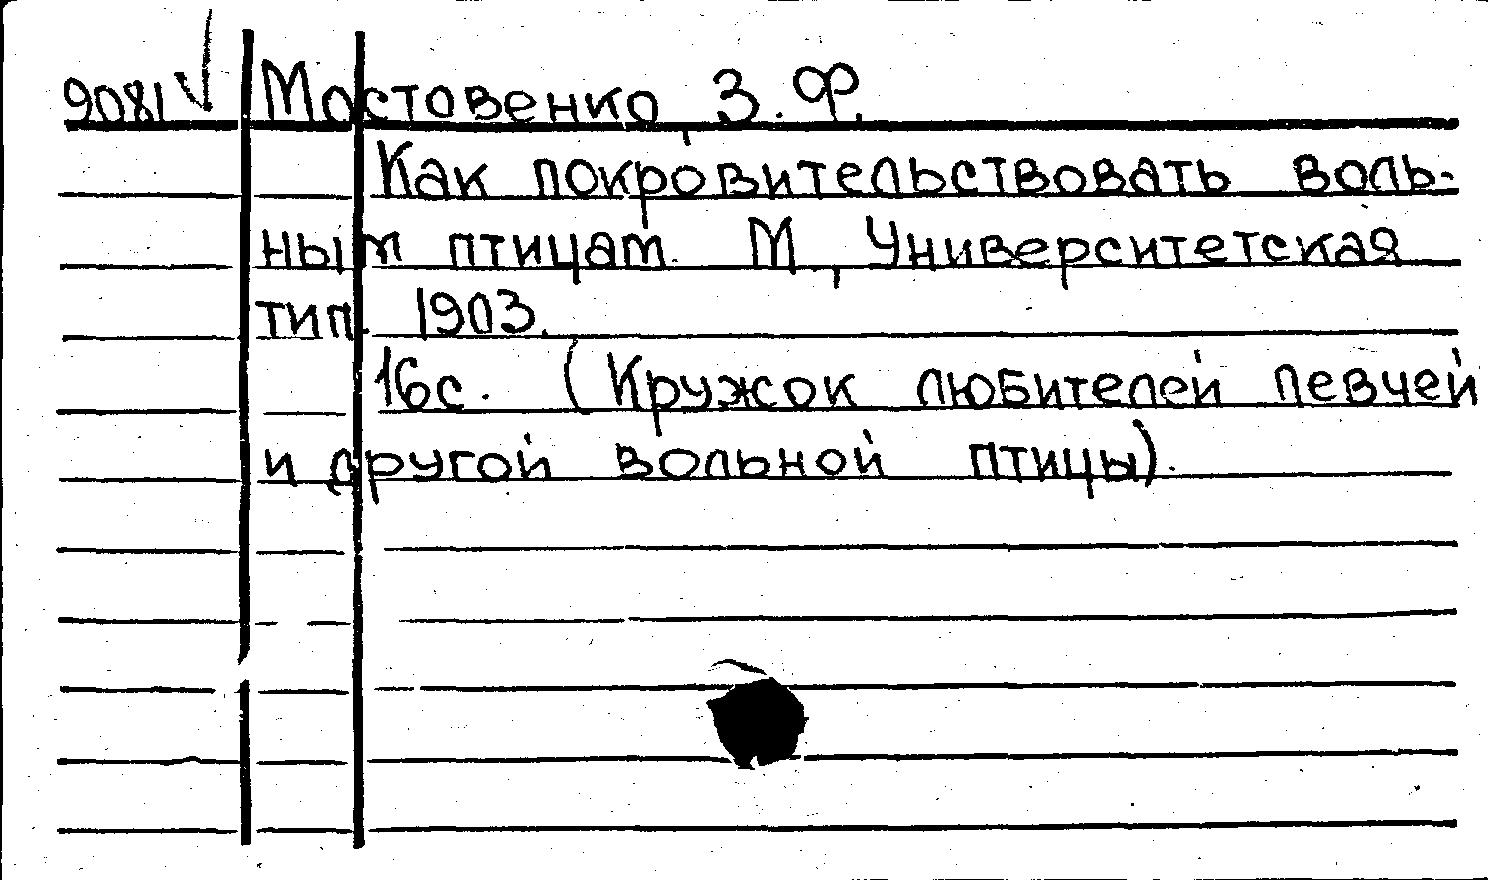 9081 Мостовенко, З. Ф.
Как покровительствовать воль-
ным птицам. М., Университетская
тип. 1903.
16с. (Кружок любителей певчей
и другой вольной птицы).